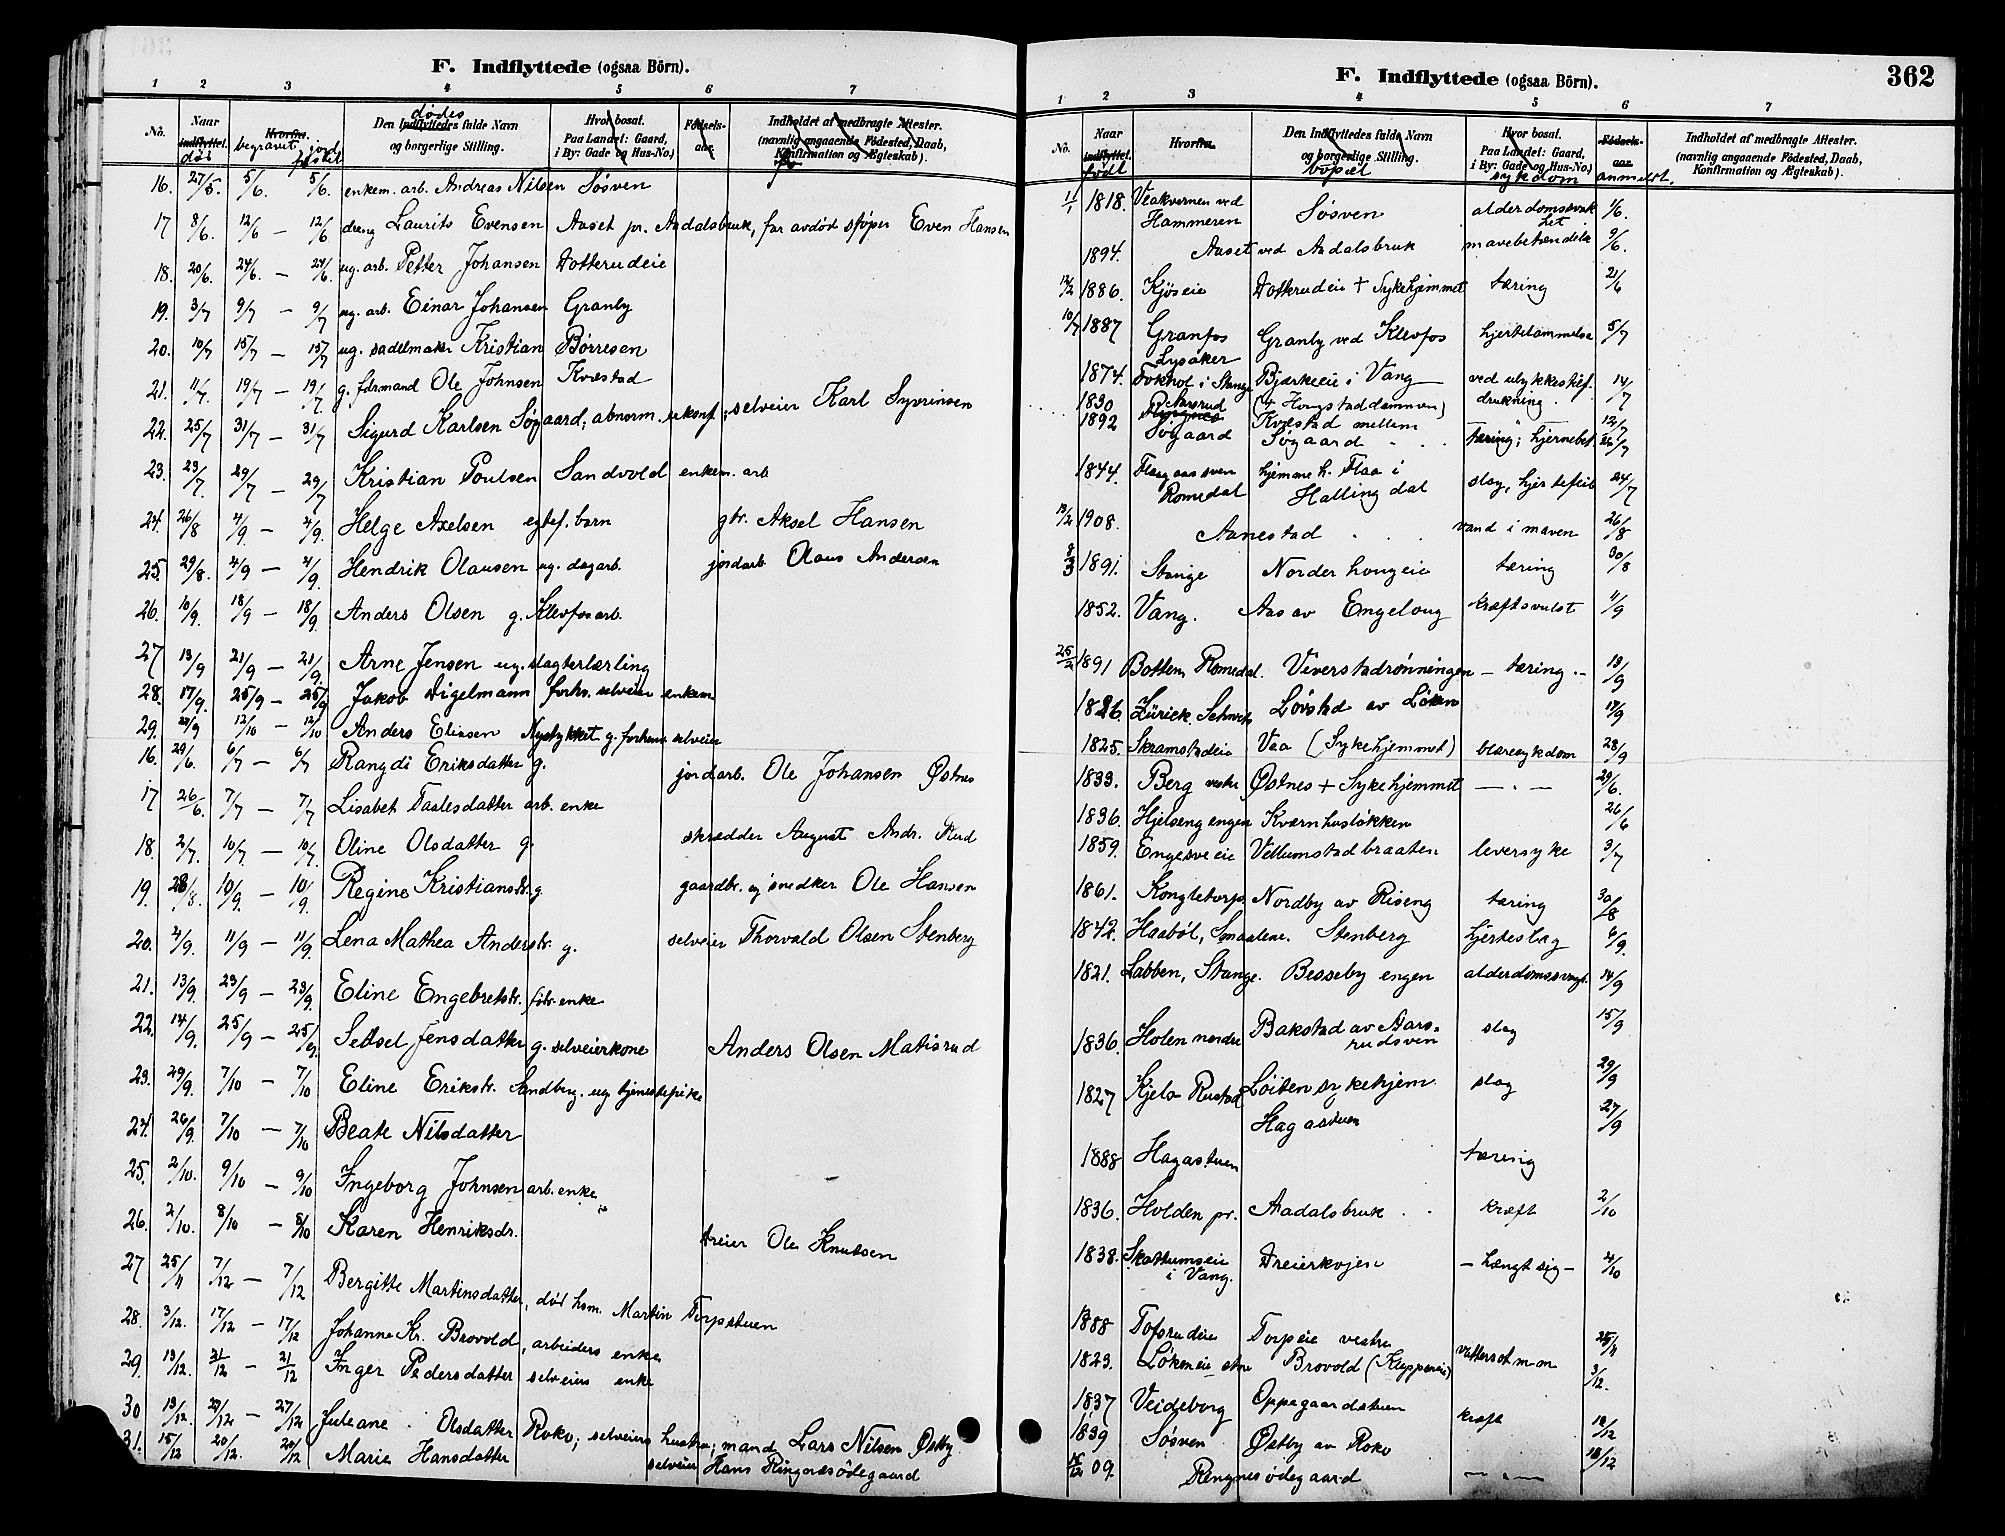 F. Indflyttede (ogsaa Börn).
1 2 3 4 5 6 7
No. Naar indflyttet. død Hvorfra. begravet jordfæstet Den Indflyttedes dødes fulde Navn og borgerlige Stilling. Hvor bosat. Paa Landet: Gaard, i By: Gade og Hus-No.) Fødsels-aar. Indholdet af medbragte Attester. (navnlig angaaende Fødested, Daab, Konfirmation og Ægteskab).
16. 27/5. 5/6. 5/6. enkem. arb. Andreas Nilsen Søsven
17 8/6. 12/6 — 12/6 dreng Laurits Evensen Aaset pr. Aadalsbruk, far avdød støper Even Hansen
18. 20/6. 24/6. — 24/6. ug. arb. Petter Johansen Dotterudeie
19. 3/7 9/7 — 9/7 ug. arb. Einar Johansen Granby
20. 10/7 15/7 — 15/7 ug. sadelmaker Kristian Børresen
21. 11/7. 19/7 — 19/7. g. formand Ole Johnsen Kvæstad
22. 25/7 31/7 — 31/7 Sigurd Karlsen Søgaard; abnorm. ukonf; selveier Karl Syvrinsen
23. 23/7. 29/7 — 29/7 Kristian Poulsen Sandvold enkem. arb
24. 26/8 4/9 — 4/9. Helge Axelsen egtef. barn gbr. Aksel Hansen
25. 29/8. 4/9 — 4/9. Hendrik Olausen ug. dagarb. jordarb Olaus Andersen
26. 10/9. 18/9 — 18/9. Anders Olsen g. Klevfosarb.
27 13/9 21/9 — 21/9. Arne Jensen ug. slagterlærling
28. 17/9. 25/9 — 25/9 Jakob Digelmann forhv. selveier enkem
29. 24/9 12/10 — 12/10 Anders Eliasen Nystykket g. forhenv selveier
16. 29/6. 6/7 — 6/7 Rangdi Eriksdatter g. jordarb. Ole Johansen Østnes
17 26/6 7/7 — 7/7 Lisabet Taalesdatter arb. enke
18. 2/7. 10/7 — 10/7. Oline Olsdatter g. skrædder August Andr. Rud
19. 28/8. 10/9. — 10/9. Regine Kristiansdtr. g. gaardbr. og snedker Ole Hansen
20. 4/9. 11/9 — 11/9. Lena Mathea Anderstr. g. selveier Thorvald Olsen Stenberg
21. 13/9. 23/9 — 23/9. Eline Engebretstr. enke
22. 14/9. 25/9 — 25/9. Sidsel Jensdatter g. selveierkone Anders Olsen Matisrud
23. 29/9. 7/10 — 7/10 Eline Erikstr. Sandberg. ug tjenestepike
24. 26/9. 7/10 — 7/10 Beate Nilsdatter
25. 2/10. 9/10 — 9/10 Ingeborg Johnsen arb. enke
26. 2/10. 8/10 — 8/10 Karen Henriksdr. dreier Ole Knutsen
27 25/11 7/12 — 7/12 Bergitte Martinsdatter, død hsm. Martin Torpstuen
28. 3/12. 17/12 — 17/12 Johanne Kr. Brovold, arbeiders enke
29. 13/12. 21/12 — 21/12 Inger Pedersdatter selveiers enke
30 19/12. 27/12 — 27/12 Juliane Olsdatter Roko; selveiers hustru; mand Lars Nilsen Østby
31. 15/12 20/12. 20/12 Marie Hansdatter selveier Hans Ringnesødegaard
F. Indflyttede (ogsaa Börn). 362
1 2 3 4 5 6 7
No. Naar indflyttet. født Hvorfra. Den Indflyttedes fulde Navn og borgerlige Stilling. bopæl Hvor bosat. Paa Landet: Gaard, i By: Gade og Hus-No.) sykdom Fødsels-aar anmeldt. Indholdet af medbragte Attester. (navnlig angaaende Fødested, Daab, Konfirmation og Ægteskab).
1/1 1818. Veakvernen ved Hammeren Søsven alderdomssvakhet 1/6.
1894. Aaset ved Aadalsbruk mavebetændelse 9/6.
12/2 1886. Kjøseie Dotterudeie + Sykehjemmet tæring 21/6
10/7 1887 Granfos Granby ved Klevfos hjertelammelse 5/7
1874. Lysaker Bjerkeeie i Vang ved ulykkestilf. drukning. 14/7
1830 Kvæstad mellem 12/7
1892 Søgaard Søgaard tæring; hjernebet. 26/7
1844. Flaagaasven Romedal hjemme h. Flaa i Hallingdal slag, hjertefeil 24/7
19/2 1908. Aanestad vand i maven 26/8
8/3 1891. Stange Norderhougeie tæring 30/8
1852. Vang. Aas av Engeloug kræftsvulst 11/9
25/2 1891 Botten, Romedal. Viverstadrønningen — tæring — 13/9
1826 Zürich. Schweiz Løvstad av Løken 19/9
1825. Skramstadeie Vaa (Sykehjemmet) blæresykdom 28/9
1833. Berg vestre Østnes + Sykehjemmet — „ — 29/6.
1836. Hjelsengengen Kværnhusløkken 26/6
1859. Engesveeie Vellumstadbraaten leversyke 3/7
1861. Kongletorps Nordby av Riseng tæring 30/8
1842. Haabøl, Smaalene. Stenberg hjerteslag 6/9.
1821. Labben, Stange. Besseby engen alderdomssvagh. 14/9
1836. Holen nordre Bakstad av Aarsrudsven slag 15/9
1827 Kjelsrustad Løiten sykehjem. slag 29/9
Hagastuen 27/9
1888 Hagastuen tæring
1836. Holden pr. Aadalsbruk kræft 2/10
1838. Skattumseie i Vang. Dreierhvien — hængt sig — 4/10
1888 Tofsrudeie Torpeie vestre 25/11
1823. Løkeneie Brovold (Kleppeneie) vattersot m-m 3/12.
1837 Veideborg Oppegaardstuen kræft
1839 Søsven Østby av Roko 18/12
15/12 09. Ringnesødegaard — „ — 18/12